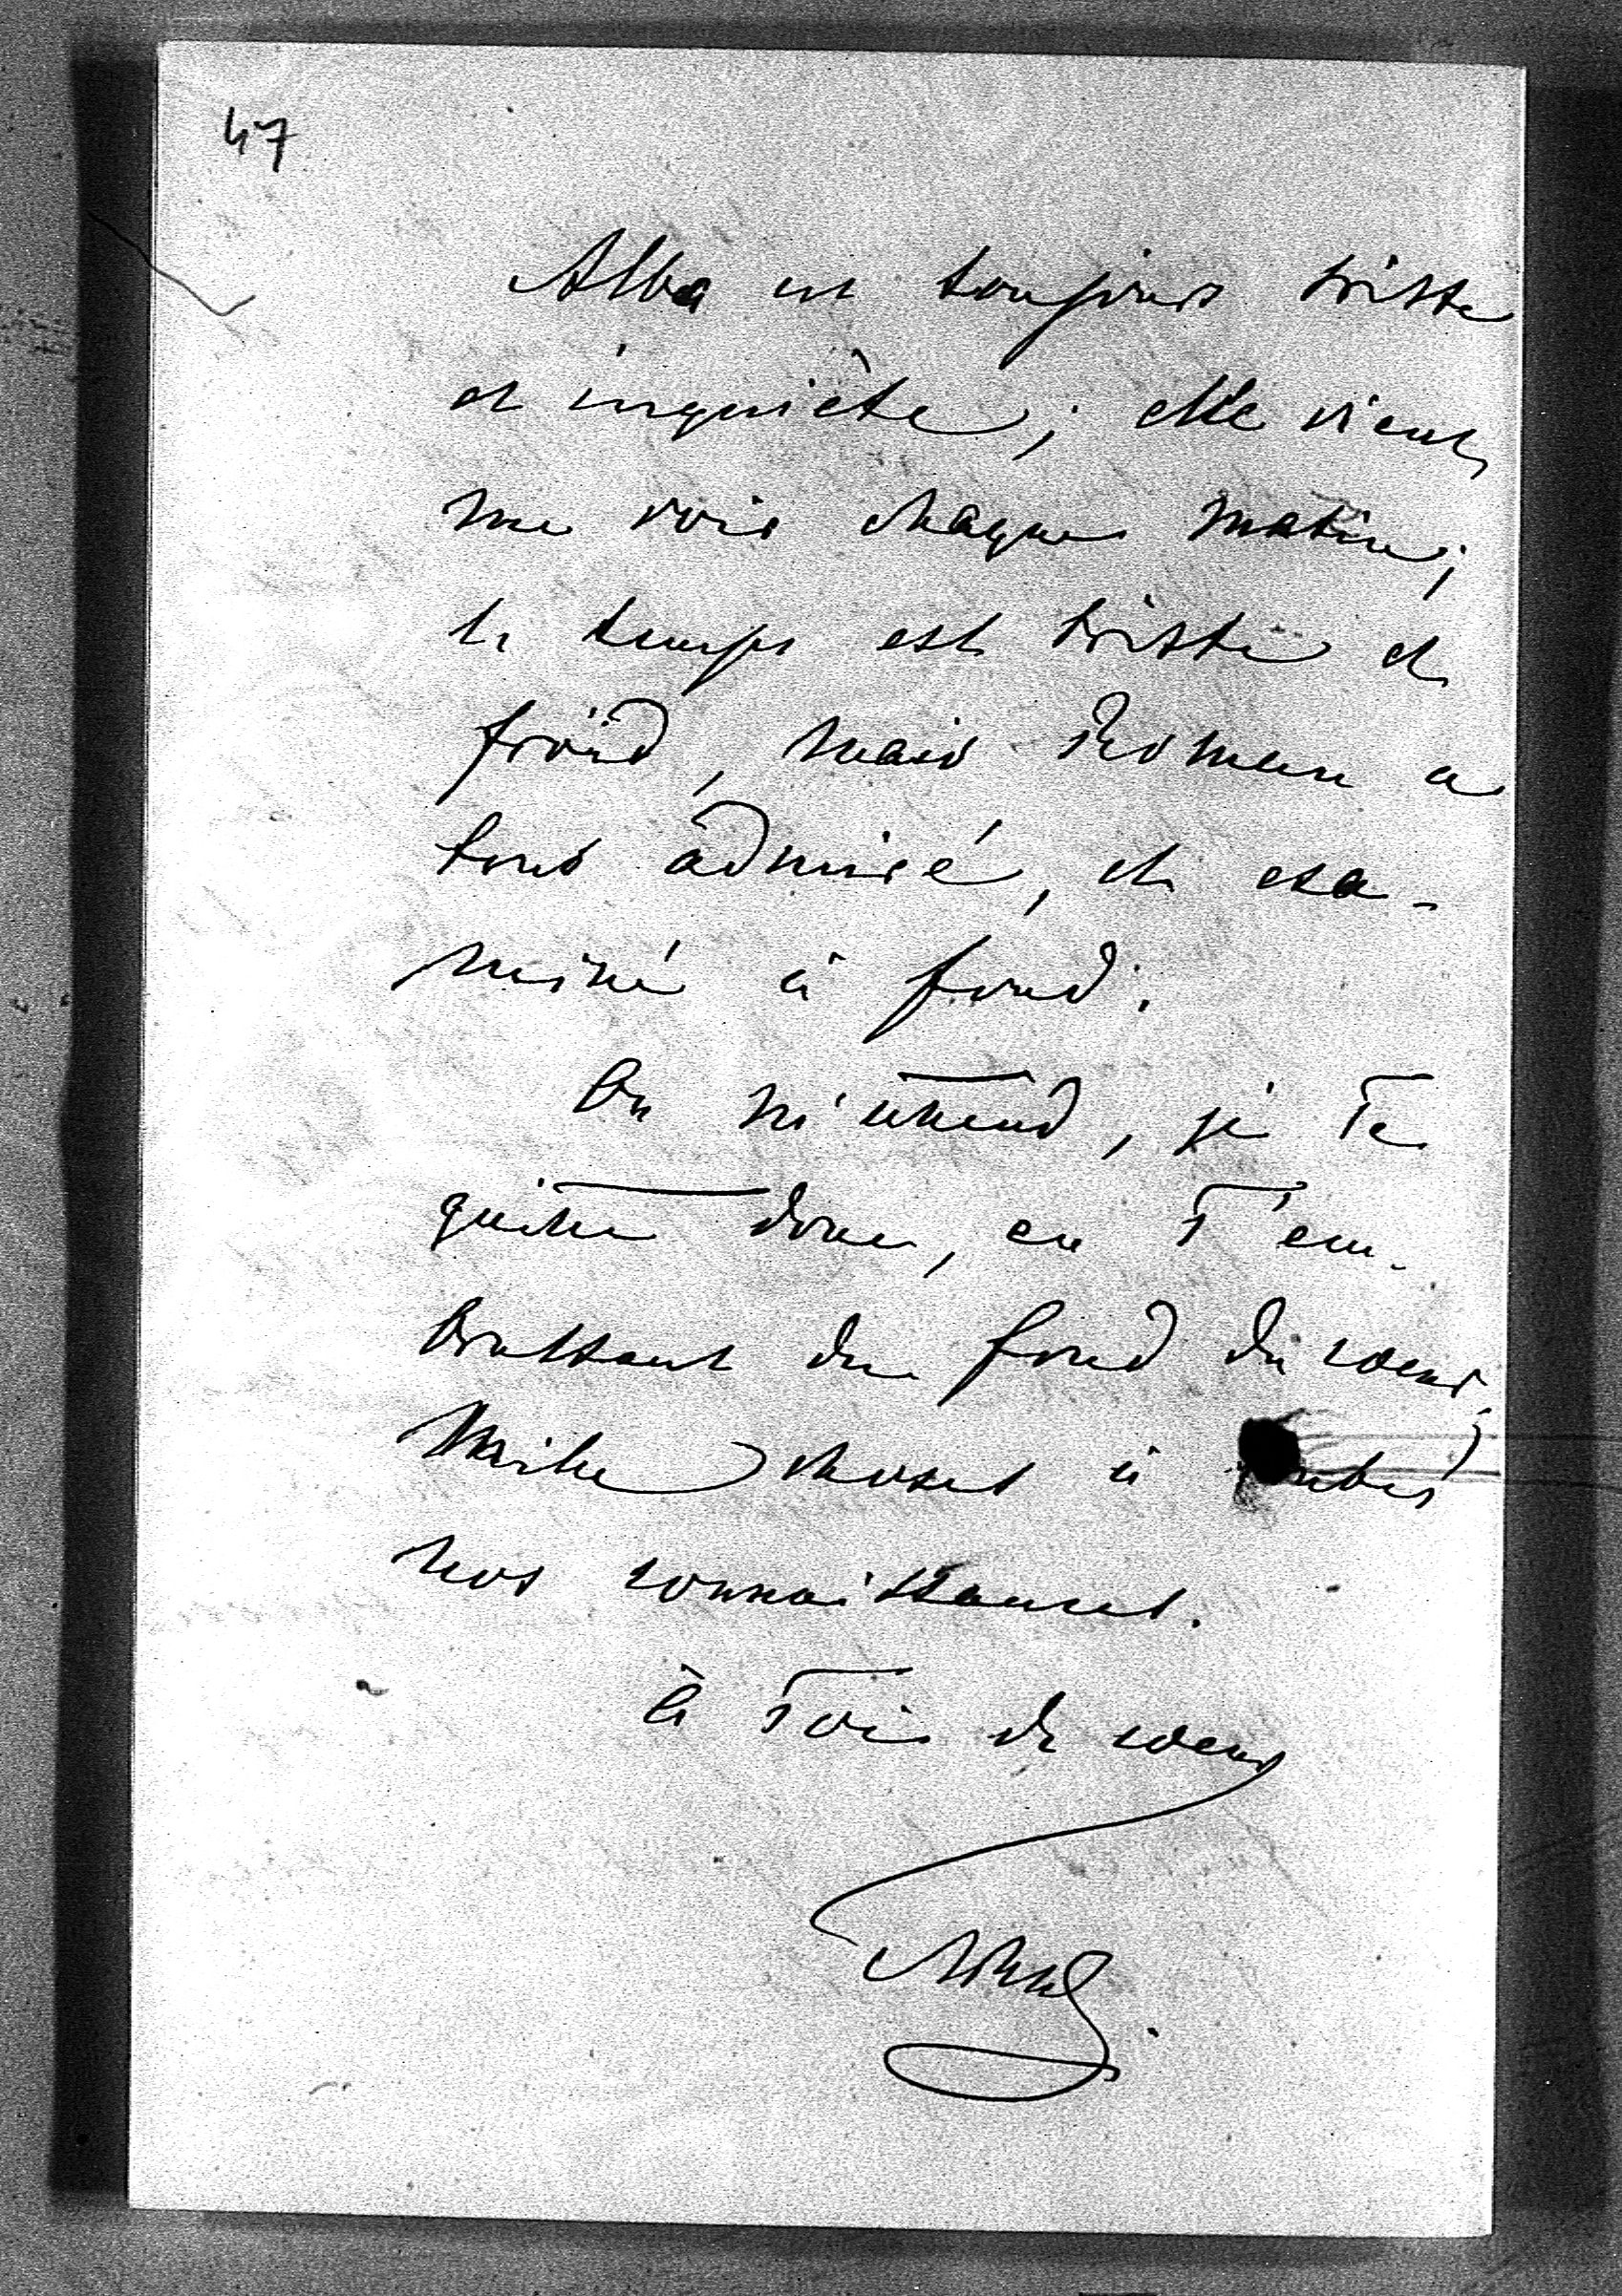 47
Alba est toujours triste
et inquiète ; elle vient
me voir chaque matin ;
le temps est triste et
froid, mais Roman a
tout admiré, et exa-
miné à fond.
On m'attend, je te
quitte donc, en t'em-
brassant du fond du cœur,
Mille choses à toutes
nos connaissances.
à toi de cœur